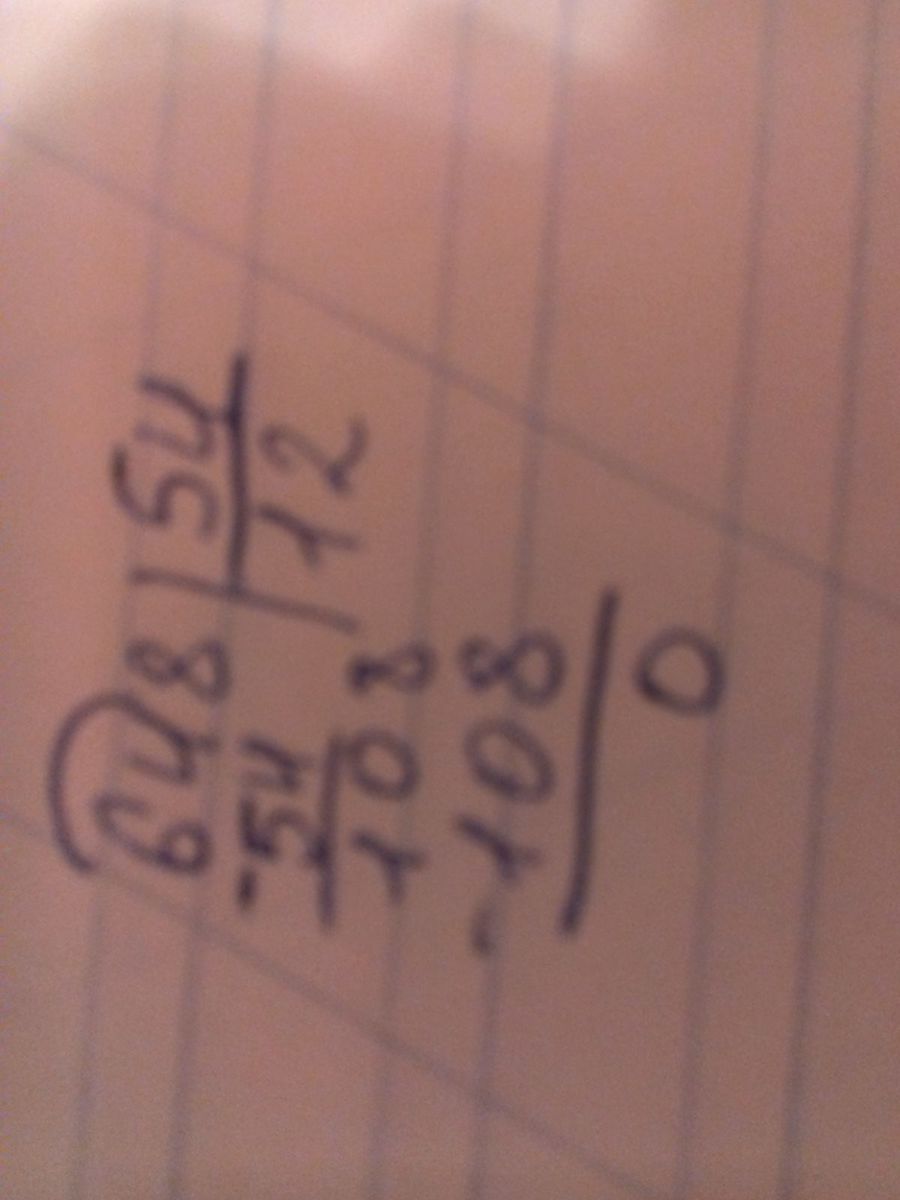 648 | 54
-54 12
108
-108
0